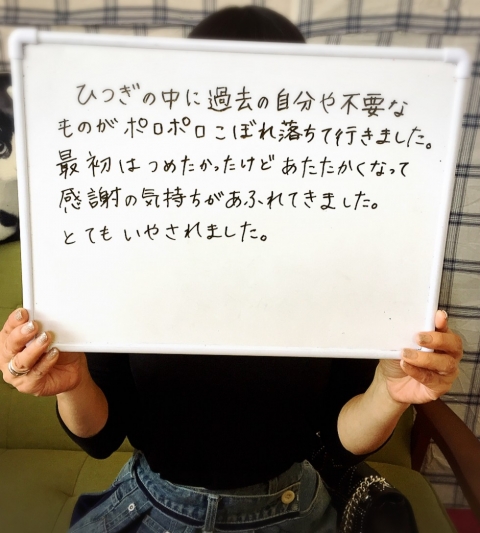 ひつぎの中に過去の自分や不要な
ものがポロポロこぼれ落ちて行きました。
最初はつめたかったけどあたたかくなって
感謝の気持ちがあふれてきました。
とてもいやされました。